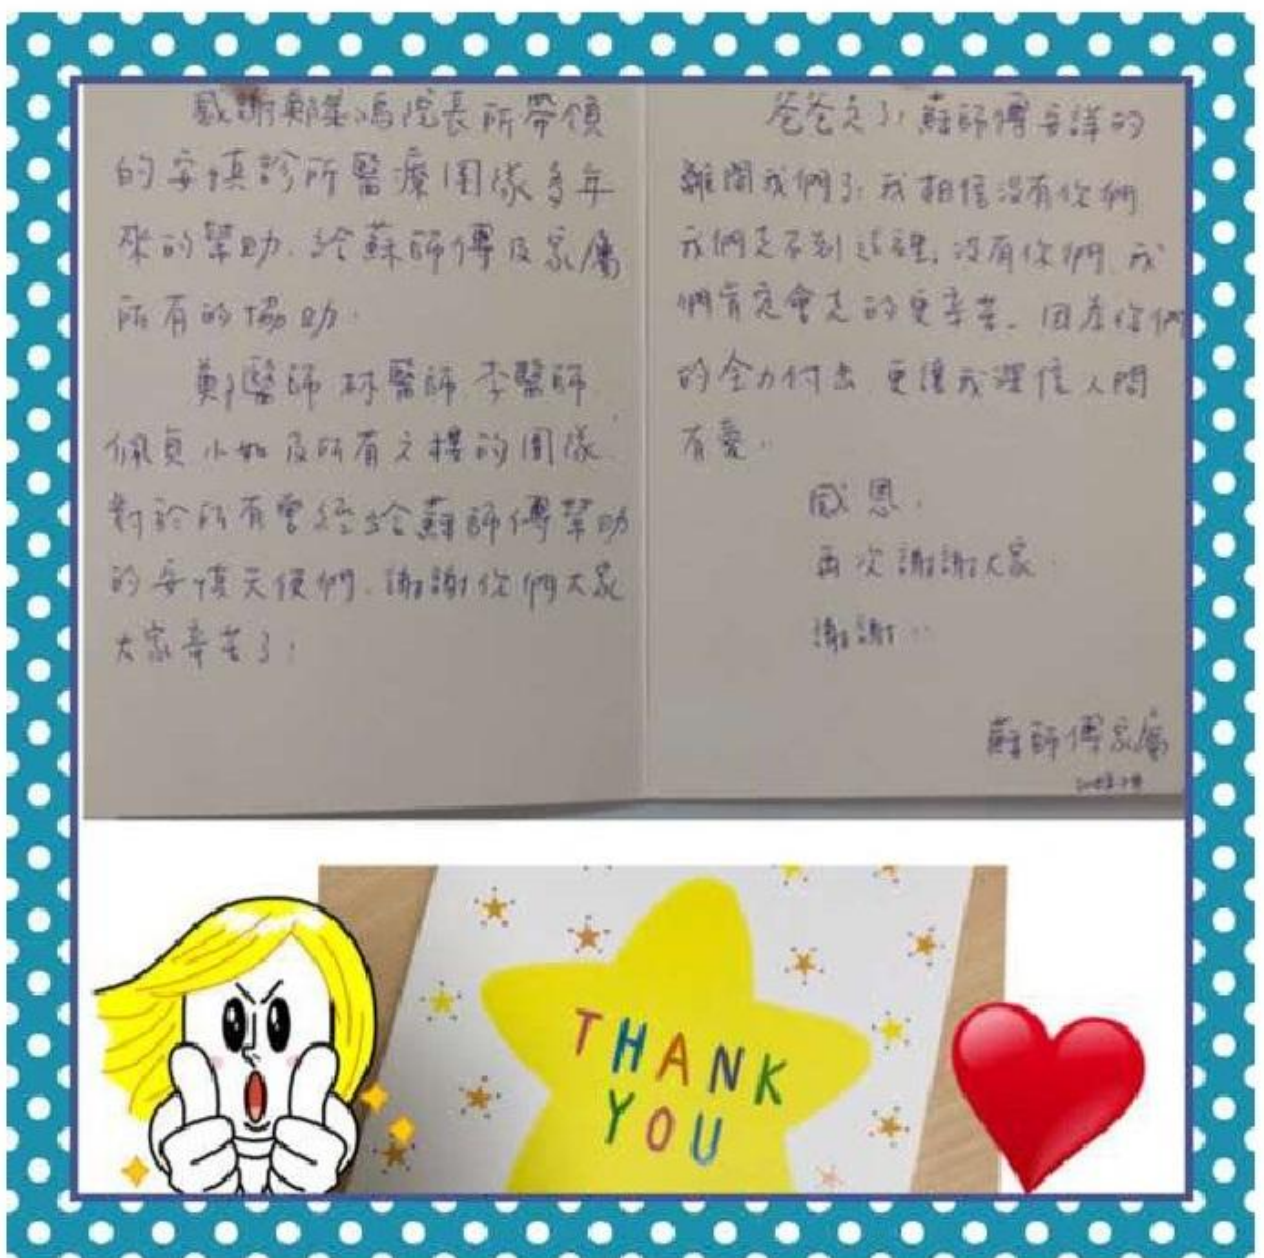 感謝鄭集鴻院長所帶領
的安慎診所醫療團隊多年
來的幫助，給蘇師傅及家屬
所有的協助。
鄭醫師 林醫師 李醫師
佩貞 小如 及所有 樓的團隊
對於所有曾經給蘇師傅幫助
的安慎天使們，謝謝你們大家
大家辛苦了！
爸爸走了，蘇師傅安詳的
離開我們了，我相信沒有你們
我們走不到這裡，沒有你們，我
們肯定會走的更辛苦。因為你們
的全力付出，更讓我深信人間
有愛..
感恩，
再次謝謝大家。
謝謝..
蘇師傅家屬
THANK
YOU